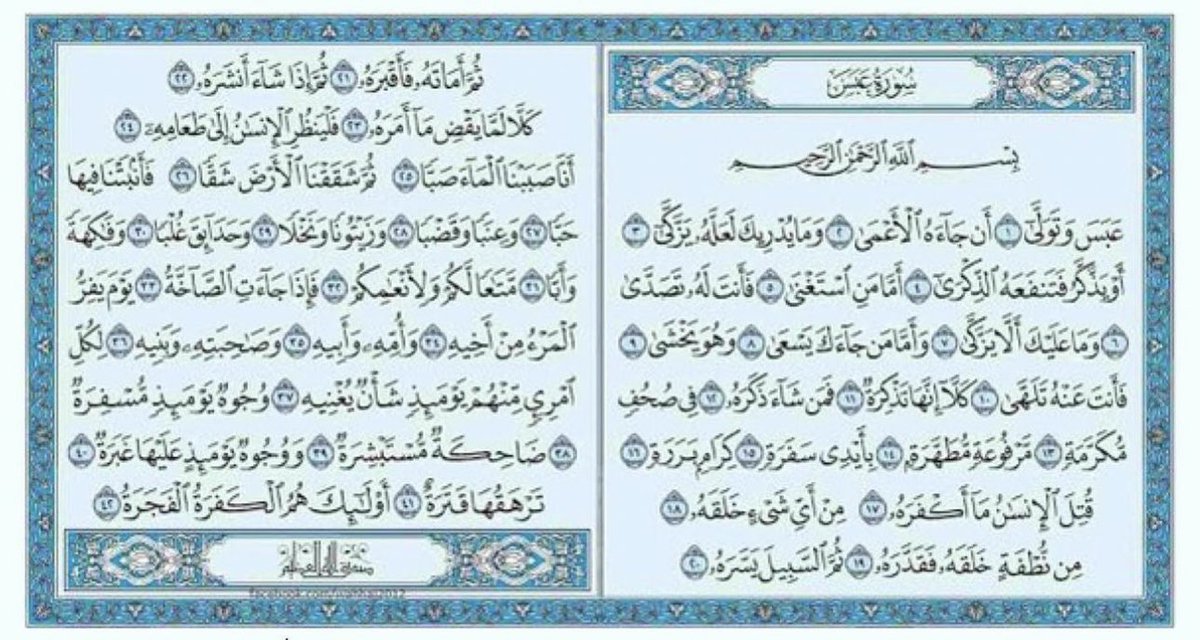 سُورَةُ عَبَسَ
بِسْمِ اللَّهِ الرَّحْمَٰنِ الرَّحِيمِ
عَبَسَ وَتَوَلَّىٰ ١ أَن جَاءَهُ الْأَعْمَىٰ ٢ وَمَا يُدْرِيكَ لَعَلَّهُ يَزَّكَّىٰ ٣
أَوْ يَذَّكَّرُ فَتَنفَعَهُ الذِّكْرَىٰ ٤ أَمَّا مَنِ اسْتَغْنَىٰ ٥ فَأَنتَ لَهُ تَصَدَّىٰ
٦ وَمَا عَلَيْكَ أَلَّا يَزَّكَّىٰ ٧ وَأَمَّا مَن جَاءَكَ يَسْعَىٰ ٨ وَهُوَ يَخْشَىٰ ٩
فَأَنتَ عَنْهُ تَلَهَّىٰ ١٠ كَلَّا إِنَّهَا تَذْكِرَةٌ ١١ فَمَن شَاءَ ذَكَرَهُ ١٢ فِي صُحُفٍ
مُّكَرَّمَةٍ ١٣ مَّرْفُوعَةٍ مُّطَهَّرَةٍ ١٤ بِأَيْدِي سَفَرَةٍ ١٥ كِرَامٍ بَرَرَةٍ ١٦
قُتِلَ الْإِنسَانُ مَا أَكْفَرَهُ ١٧ مِنْ أَيِّ شَيْءٍ خَلَقَهُ ١٨
مِن نُّطْفَةٍ خَلَقَهُ فَقَدَّرَهُ ١٩ ثُمَّ السَّبِيلَ يَسَّرَهُ ٢٠
ثُمَّ أَمَاتَهُ فَأَقْبَرَهُ ٢١ ثُمَّ إِذَا شَاءَ أَنشَرَهُ ٢٢
كَلَّا لَمَّا يَقْضِ مَا أَمَرَهُ ٢٣ فَلْيَنظُرِ الْإِنسَانُ إِلَىٰ طَعَامِهِ ٢٤
أَنَّا صَبَبْنَا الْمَاءَ صَبًّا ٢٥ ثُمَّ شَقَقْنَا الْأَرْضَ شَقًّا ٢٦ فَأَنبَتْنَا فِيهَا
حَبًّا ٢٧ وَعِنَبًا وَقَضْبًا ٢٨ وَزَيْتُونًا وَنَخْلًا ٢٩ وَحَدَائِقَ غُلْبًا ٣٠ وَفَاكِهَةً
وَأَبًّا ٣١ مَّتَاعًا لَّكُمْ وَلِأَنْعَامِكُمْ ٣٢ فَإِذَا جَاءَتِ الصَّاخَّةُ ٣٣ يَوْمَ يَفِرُّ
الْمَرْءُ مِنْ أَخِيهِ ٣٤ وَأُمِّهِ وَأَبِيهِ ٣٥ وَصَاحِبَتِهِ وَبَنِيهِ ٣٦ لِكُلِّ
امْرِئٍ مِّنْهُمْ يَوْمَئِذٍ شَأْنٌ يُغْنِيهِ ٣٧ وُجُوهٌ يَوْمَئِذٍ مُّسْفِرَةٌ
٣٨ ضَاحِكَةٌ مُّسْتَبْشِرَةٌ ٣٩ وَوُجُوهٌ يَوْمَئِذٍ عَلَيْهَا غَبَرَةٌ ٤٠
تَرْهَقُهَا قَتَرَةٌ ٤١ أُولَٰئِكَ هُمُ الْكَفَرَةُ الْفَجَرَةُ ٤٢